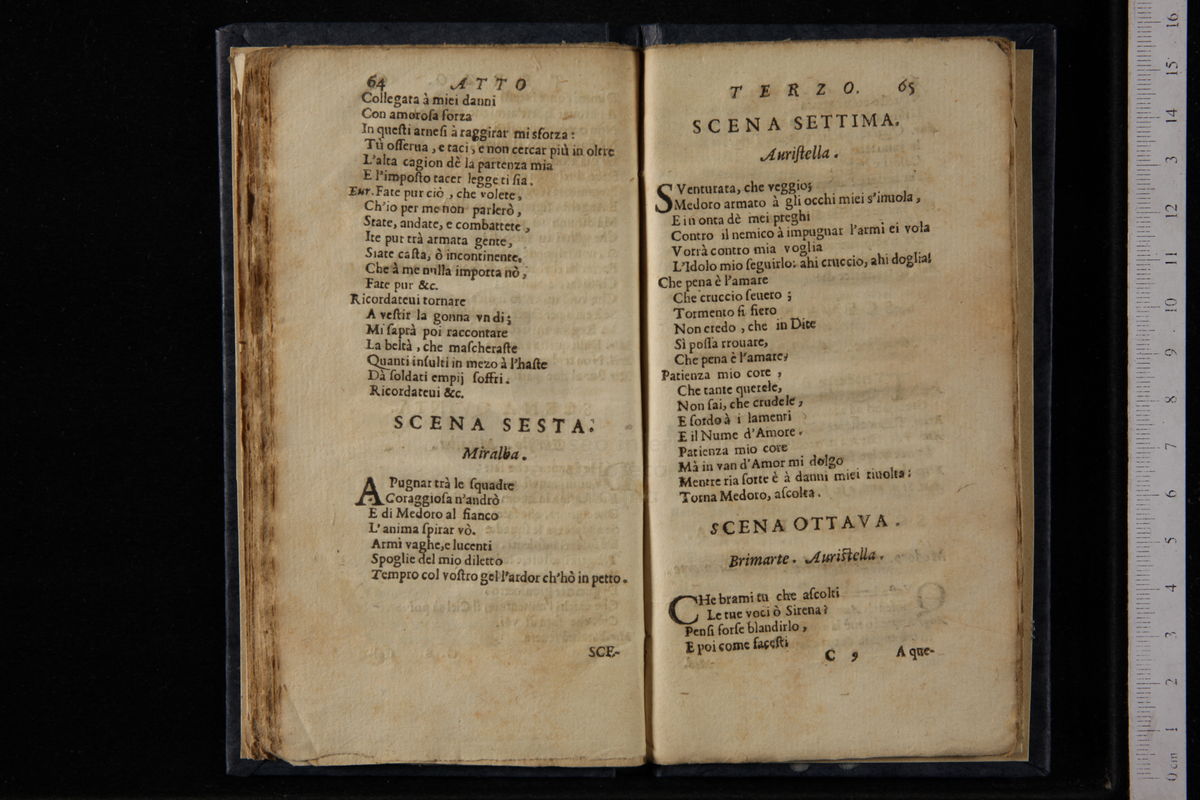 64 ATTO
Collegata à miei danni
Con amorosa forza
In questi arnesi à raggirar mi sforza:
Tù osserua, e taci, e non cercar più in oltre
L'alta cagion dè la partenza mia
E l'imposto tacer legge ti sia.
Eur. Fate pur ciò, che volete,
Ch'io per me non parlerò,
State, andate, e combattete,
Ite pur trà armata gente,
Siate casta, ò incontinente,
Che à me nulla importa nò,
Fate pur &c.
Ricordateui tornare
A vestir la gonna vn dì;
Mi saprà poi raccontare
La beltà, che mascheraste
Quanti insulti in mezo à l'haste
Dà soldati empij soffrì.
Ricordateui &c.
SCENA SESTA.
Miralba.
A Pugnar trà le squadre
Coraggiosa n'andrò
E di Medoro al fianco
L'anima spirar vò.
Armi vaghe, e lucenti
Spoglie del mio diletto
Tempro col vostro gel l'ardor ch'hò in petto.
SCE-
TERZO. 65
SCENA SETTIMA.
Auristella.
SVenturata, che veggio;
Medoro armato à gli occhi miei s'inuola,
E in onta dè mei preghi
Contro il nemico à impugnar l'armi ei vola
Vorrà contro mia voglia
L'Idolo mio seguirlo: ahi cruccio, ahi doglia!
Che pena è l'amare
Che cruccio seuero;
Tormento sì fiero
Non credo, che in Dite
Sì possa trouare,
Che pena è l'amare;
Patienza mio core,
Che tante querele,
Non sai, che crudele,
E sordo à i lamenti
E il Nume d'Amore.
Patienza mio core
Mà in van d'Amor mi dolgo
Mentre ria sorte è à danni miei riuolta:
Torna Medoro, ascolta.
SCENA OTTAVA.
Brimarte. Auristella.
CHe brami tu che ascolti
Le tue voci ò Sirena?
Pensi forse blandirlo,
E poi come facesti
C 9 A que-
0 cm 1 2 3 4 5 6 7 8 9 10 11 12 13 14 15 16